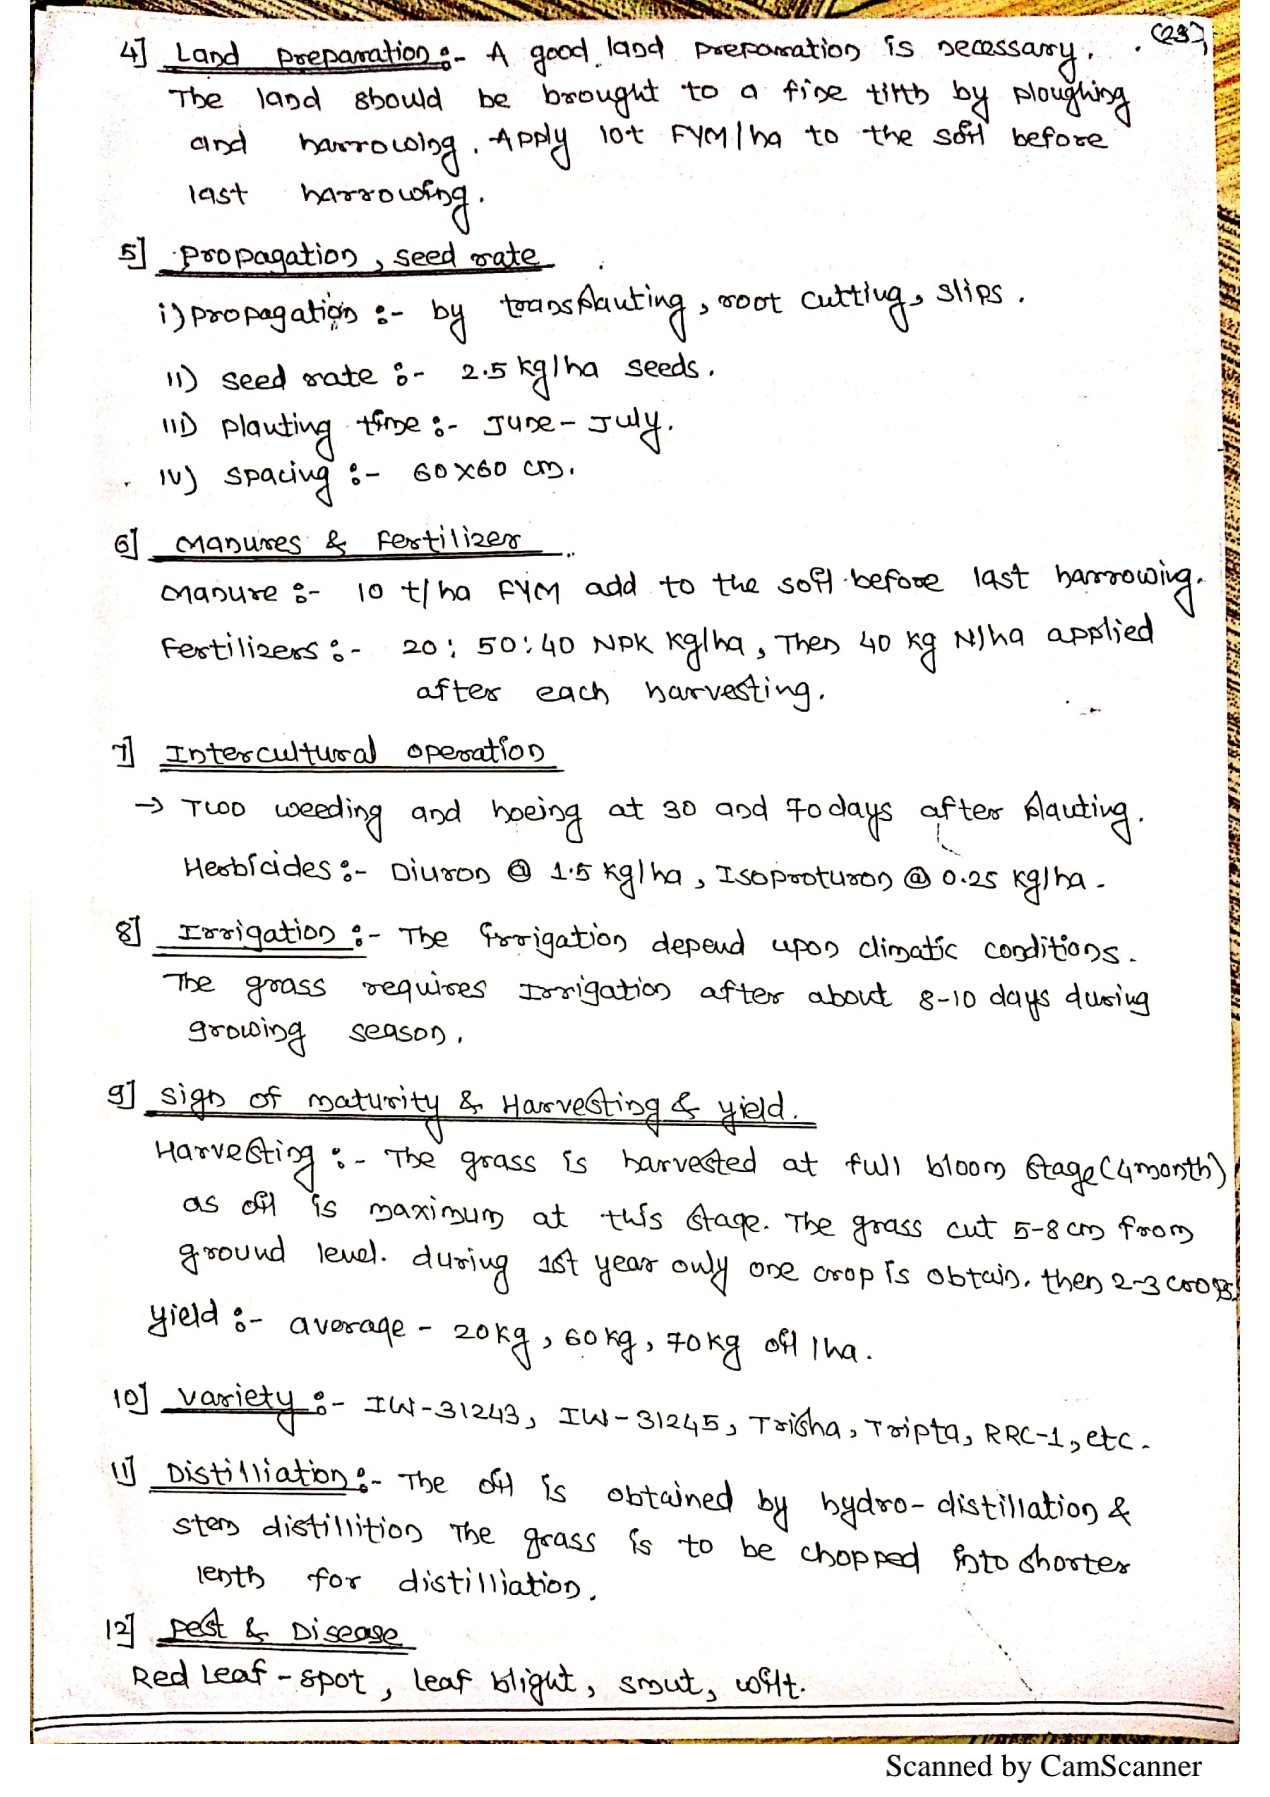 (23)
4] Land preparation :- A good land preparation is necessary.
The land should be brought to a fine tilth by ploughing
and harrowing. Apply 10t FYM/ha to the soil before
last harrowing.
5] propagation, seed rate
i) propagation :- by transplanting, root cutting, slips.
II) seed rate :- 2.5 kg/ha seeds.
III) planting time :- June - July.
IV) spacing :- 60x60 cm.
6] Manures & Fertilizer
Manure :- 10 t/ha FYM add to the soil before last harrowing.
Fertilizers :- 20:50:40 NPK kg/ha, Then 40 kg N/ha applied
after each harvesting.
7] Intercultural operation
→ Two weeding and hoeing at 30 and 70 days after planting.
Herbicides :- Diuron @ 1.5 kg/ha, Isoproturon @ 0.25 kg/ha.
8] Irrigation :- The irrigation depend upon climatic conditions.
The grass requires Irrigation after about 8-10 days during
growing season.
9] Sign of maturity & Harvesting & yield.
Harvesting :- The grass is harvested at full bloom stage (4 month)
as oil is maximum at this stage. The grass cut 5-8 cm from
ground level. during 1st year only one crop is obtain. then 2-3 crops.
Yield :- average - 20kg, 60kg, 70kg oil /ha.
10] Variety :- IW-31243, IW-31245, Trisha, Tripta, RRC-1, etc.
11] Distilliation :- The oil is obtained by hydro-distillation &
stem distillition The grass is to be chopped into shorter
lenth for distilliation.
12] Pest & Disease
Red Leaf-spot, leaf blight, smut, wilt.
Scanned by CamScanner